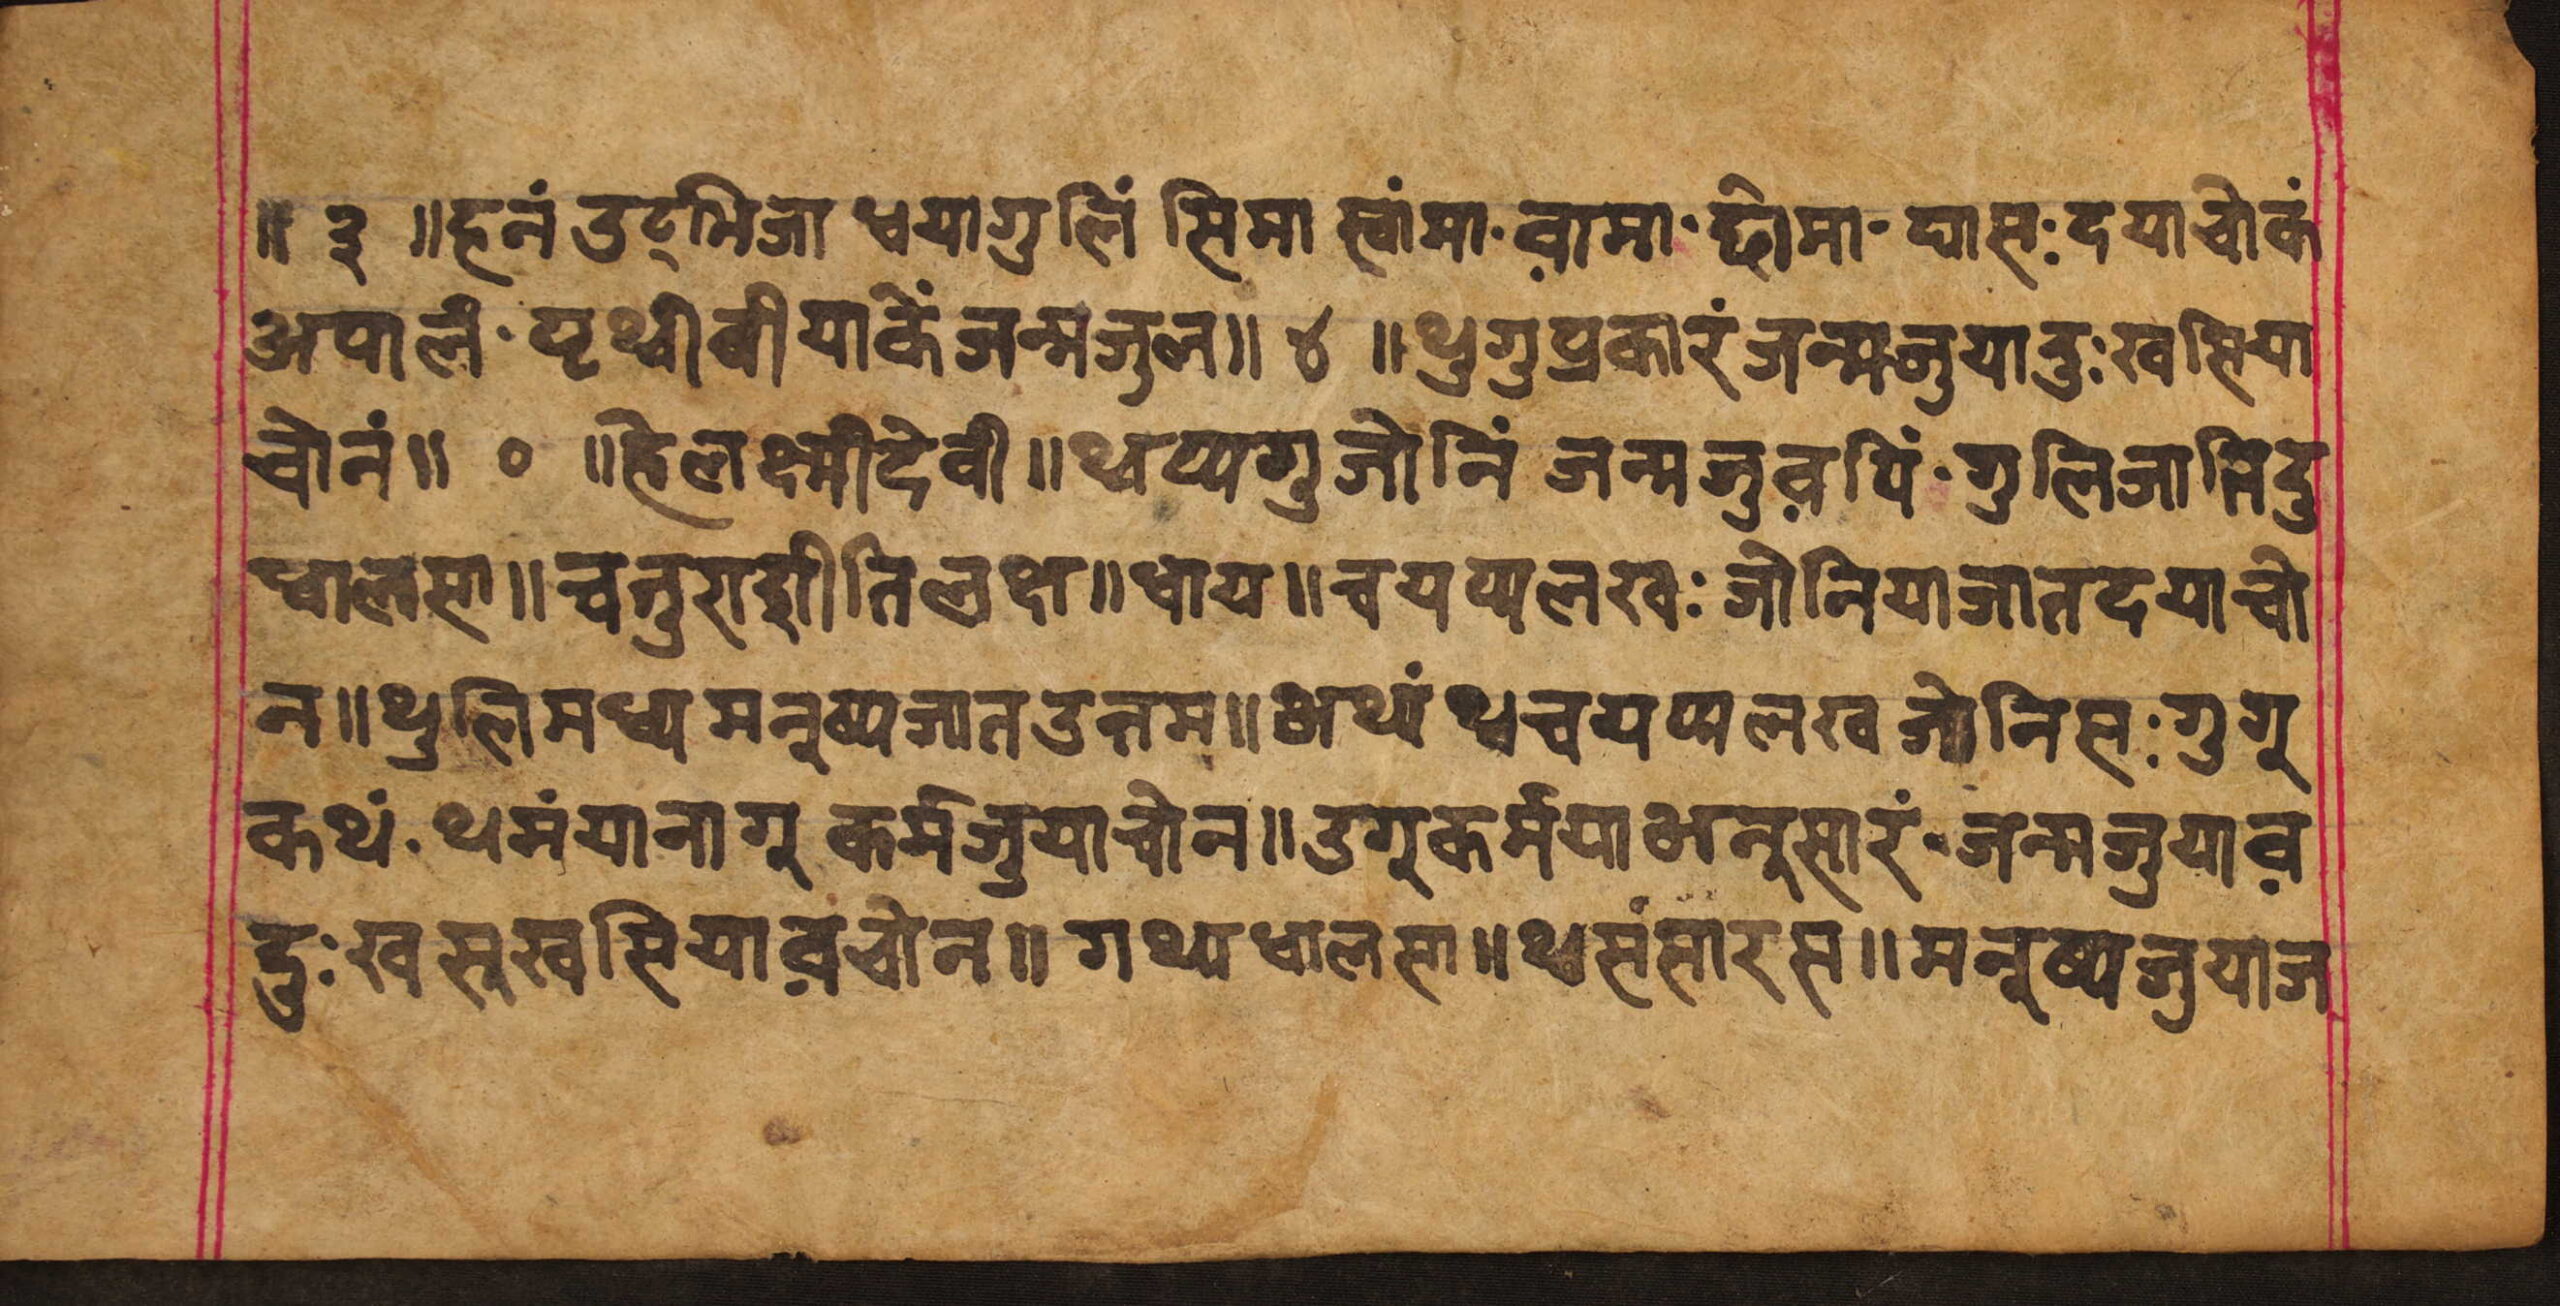 ॥ ३ ॥हनं उद्भिजा धयागुलिं सिमा स्वांमा· व़ामा· छोमा· घासः दयाचोकं
अपालं· पृथ्वीवीयाकें जन्मजुल॥ ४ ॥थुगुप्रकारं जन्मजुयादुःख सिया
चोनं॥ ० ॥हेलक्ष्मीदेवी॥ थ्वप्यगुजोनिं जन्मजुव़पिं· गुलिजातिदु
धालसा॥ चतुराशीतिलक्ष॥ धाय॥ चयप्यलखः जोनियाजातदयाचो
न॥ थुलिमध्य मनूष्यजात उत्तम॥ अथ्यं थ्वचयप्यलख जोनिसः गुगू
कथं· थमंयानागू कर्मजुयाचोन॥ उगूकर्मयाअनूसारं· जन्मजुयाव़
दुःख सूख सियाव़चोन॥ गथ्यधालसा॥ थ्वसंसारस॥ मनूष्यजुयाज